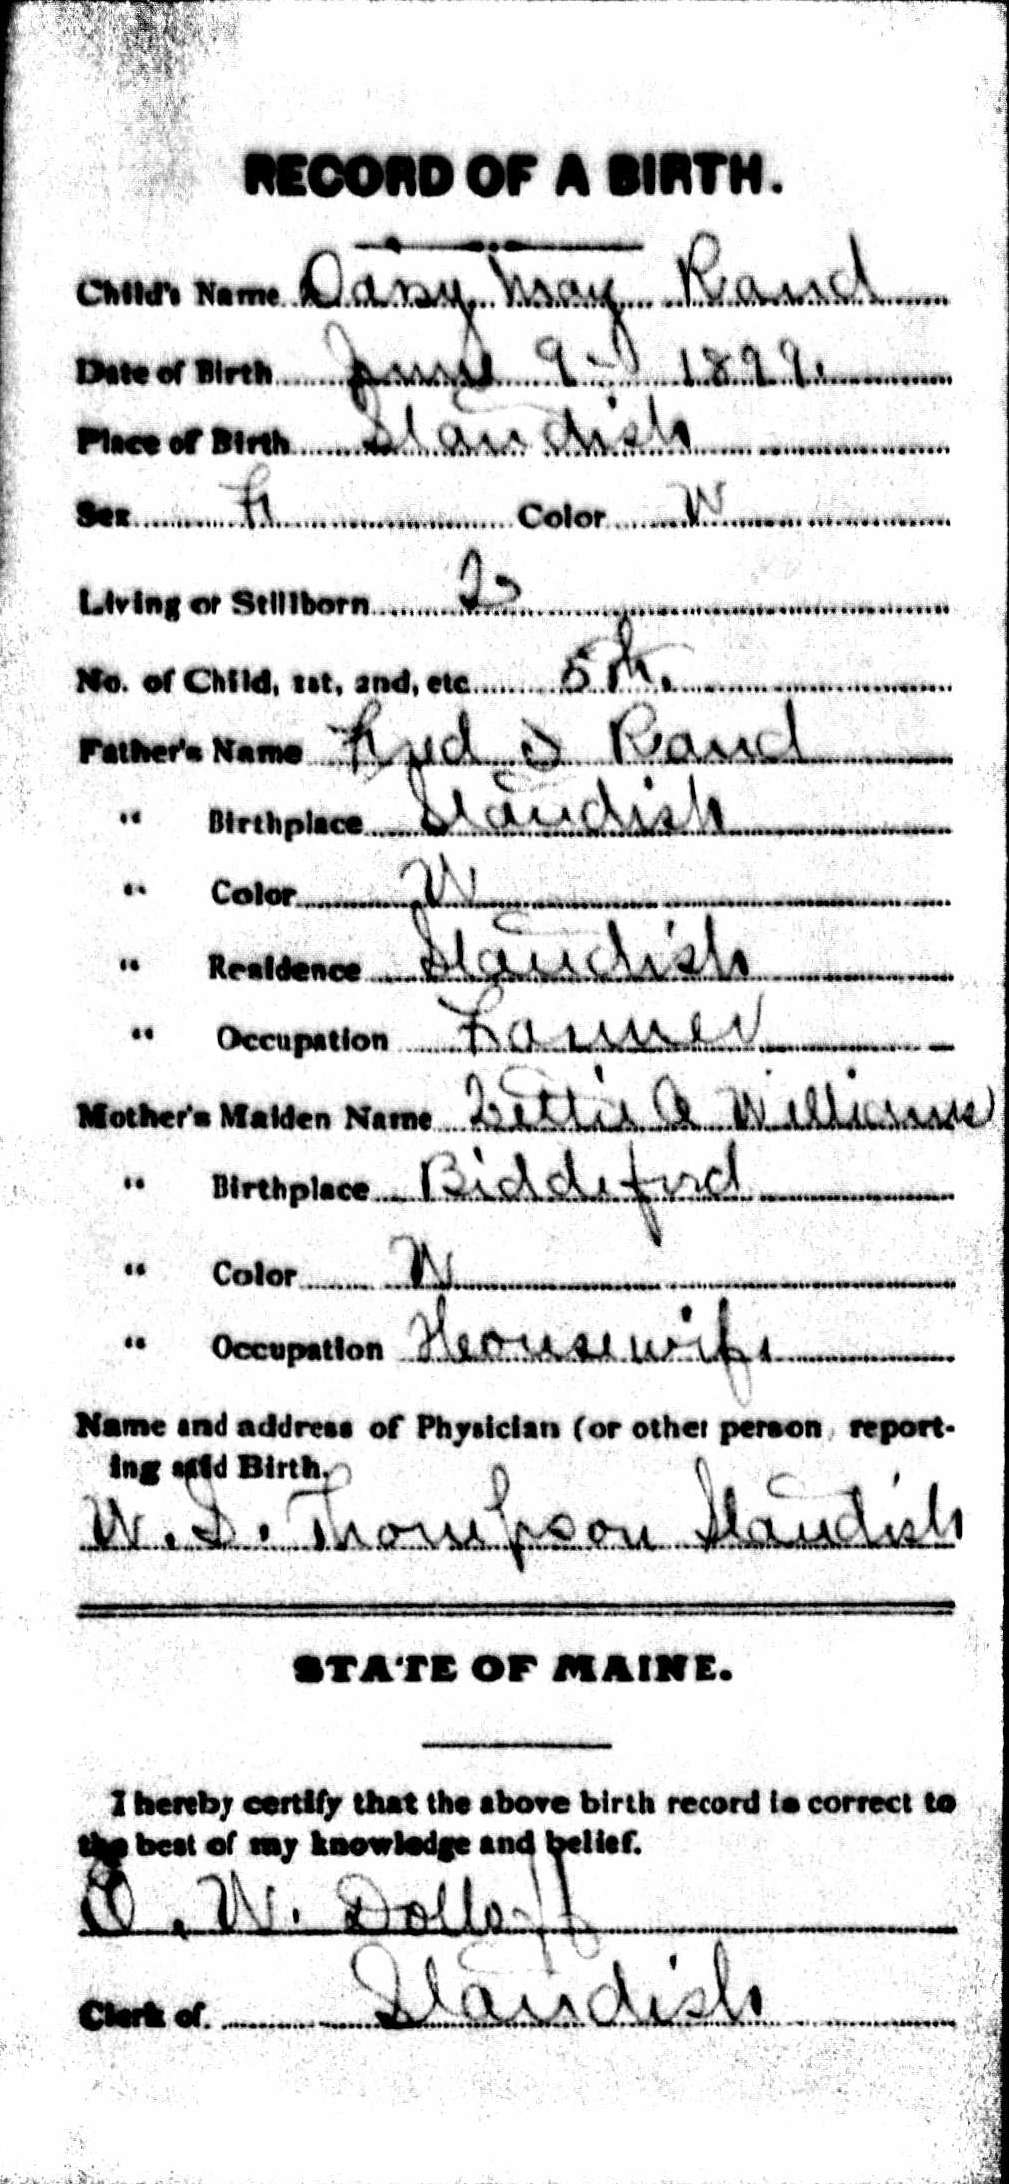 RECORD OF A BIRTH.
Child's Name Daisy May Rand
Date of Birth June 9 1899.
Place of Birth Standish
Sex F Color W
Living or Stillborn L
No. of Child, 1st, 2nd, etc 5th.
Father's Name Fred S Rand
" Birthplace Standish
" Color W
" Residence Standish
" Occupation Farmer
Mother's Maiden Name Lettie A Williams
" Birthplace Biddeford
" Color W
" Occupation Housewife
Name and address of Physician (or other person, report-
ing said Birth.
W. S. Thompson Standish
STATE OF MAINE.
I hereby certify that the above birth record is correct to
the best of my knowledge and belief.
O. W. Dolloff
Clerk of. Standish